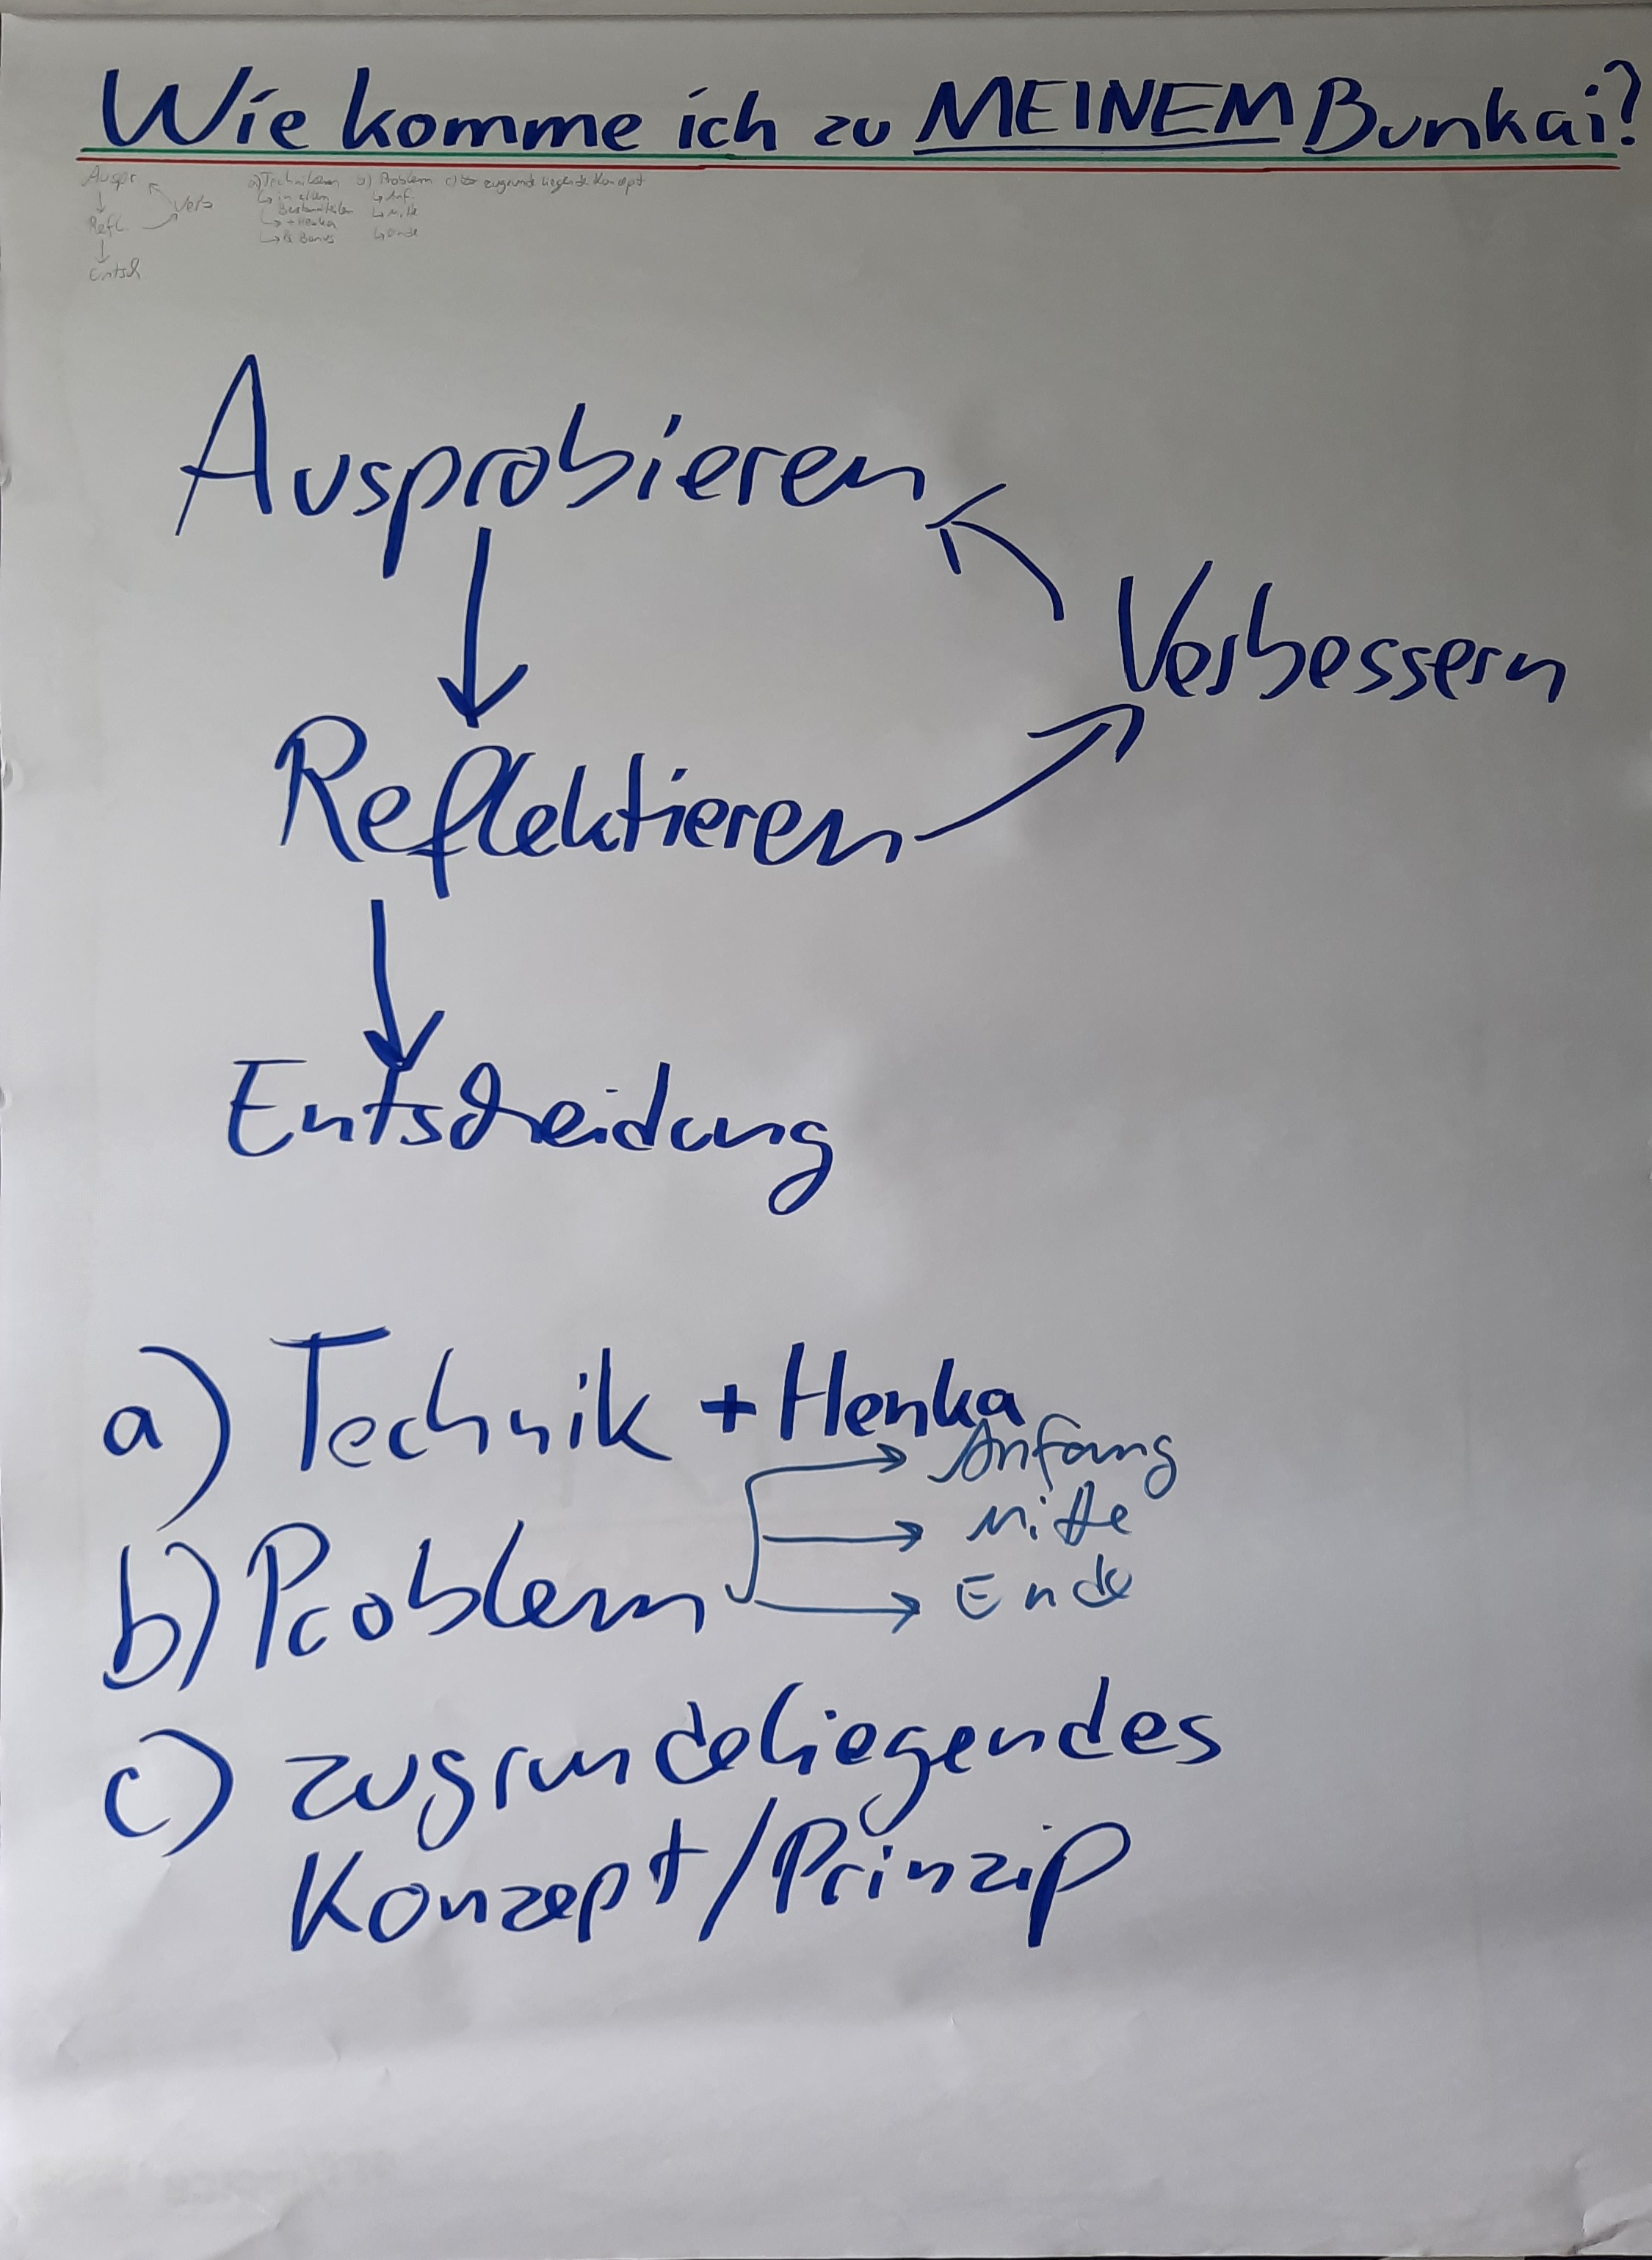 Wie komme ich zu MEINEM Bunkai?
Auspr
Verb
Refl.
Entsch
a) Techniken b) Problem c) zugrunde liegende Konzept
↳ in allen ↳ Anf.
Bestandteilen ↳ Mitte
↳ + Henka ↳ Ende
Ausprobieren
Verbessern
Reflektieren
Entscheidung
a) Technik + Henka
Anfang
Mitte
b) Problem
Ende
c) zugrundeliegendes
Konzept/Prinzip